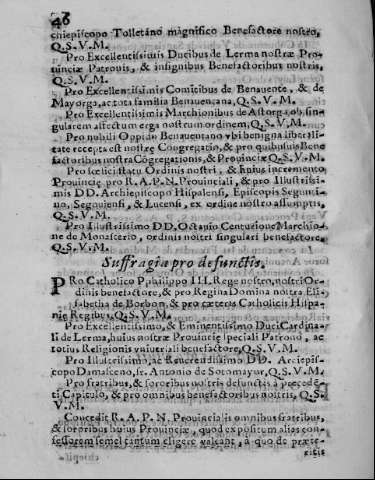 46
chiepiscopo Tolletano magnifico Benefactore nostro,
Q.S.V.M.
Pro Excellentissimis Ducibus de Lerma nostræ Pro-
uinciæ Patronis, & insignibus Benefactoribus nostris,
Q.S.V.M.
Pro Excellentissimis Comitibus de Benauente, & de
Mayorga, ac tota familia Benauentana, Q.S.V.M.
Pro Excellentissimis Marchionibus de Astorga ob sin-
gularem affectum erga nostrum ordinem, Q.S.V.M.
Pro nobili Oppido Benauentano vbi benigna liberali-
tate recepta est nostra Congregatio, & pro quibusuis Bene
factoribus nostræ Cõgregationis, & Prouinciæ Q.S.V.M.
Pro fœlici statu Ordinis nostri, & huius incremento
Prouinciæ pro R.A.P.N. Prouinciali, & pro Illustrissi-
mis DD. Archiepiscopo Hispalensi, Episcopis Segunti-
no, Segouiensi, & Lucensi, ex ordine nostro assumptis,
Q.S.V.M.
Pro Illustrissimo DD. Octauio Centurione Marchio-
ne de Monasterio, ordinis nostri singulari benefactore,
Q.S.V.M.
Suffragia pro defunctis.
PRo Catholico Philippo III. Rege nostro, nostri Or-
dinis benefactore, & pro Regina Domina nostra Eli-
sabetha de Borbon, & pro cæteris Catholicis Hispa-
niæ Regibus, Q.S.V.M.
Pro Excellentissimo, & Eminentissimo Duci Cardina-
li de Lerma, huius nostræ Prouinciæ speciali Patrono, ac
totius Religionis vniuersali benefactore, Q.S.V.M.
Pro Illustrissimo, ac Reuerendissimo DD. Archiepis-
copo Damasceno, fr. Antonio de Sotomayur, Q.S.V.M.
Pro fratribus, & sororibus nostris defunctis à præcedẽ
ti Capitulo, & pro omnibus benefactoribus nostris, Q.S.
V.M.
Concedit R.A.P.N. Prouincialis omnibus fratribus,
& sororibus huius Prouinciæ, quod expositum alias con-
fessorem semel tantum eligere valeant, à quo de præte-
ritis